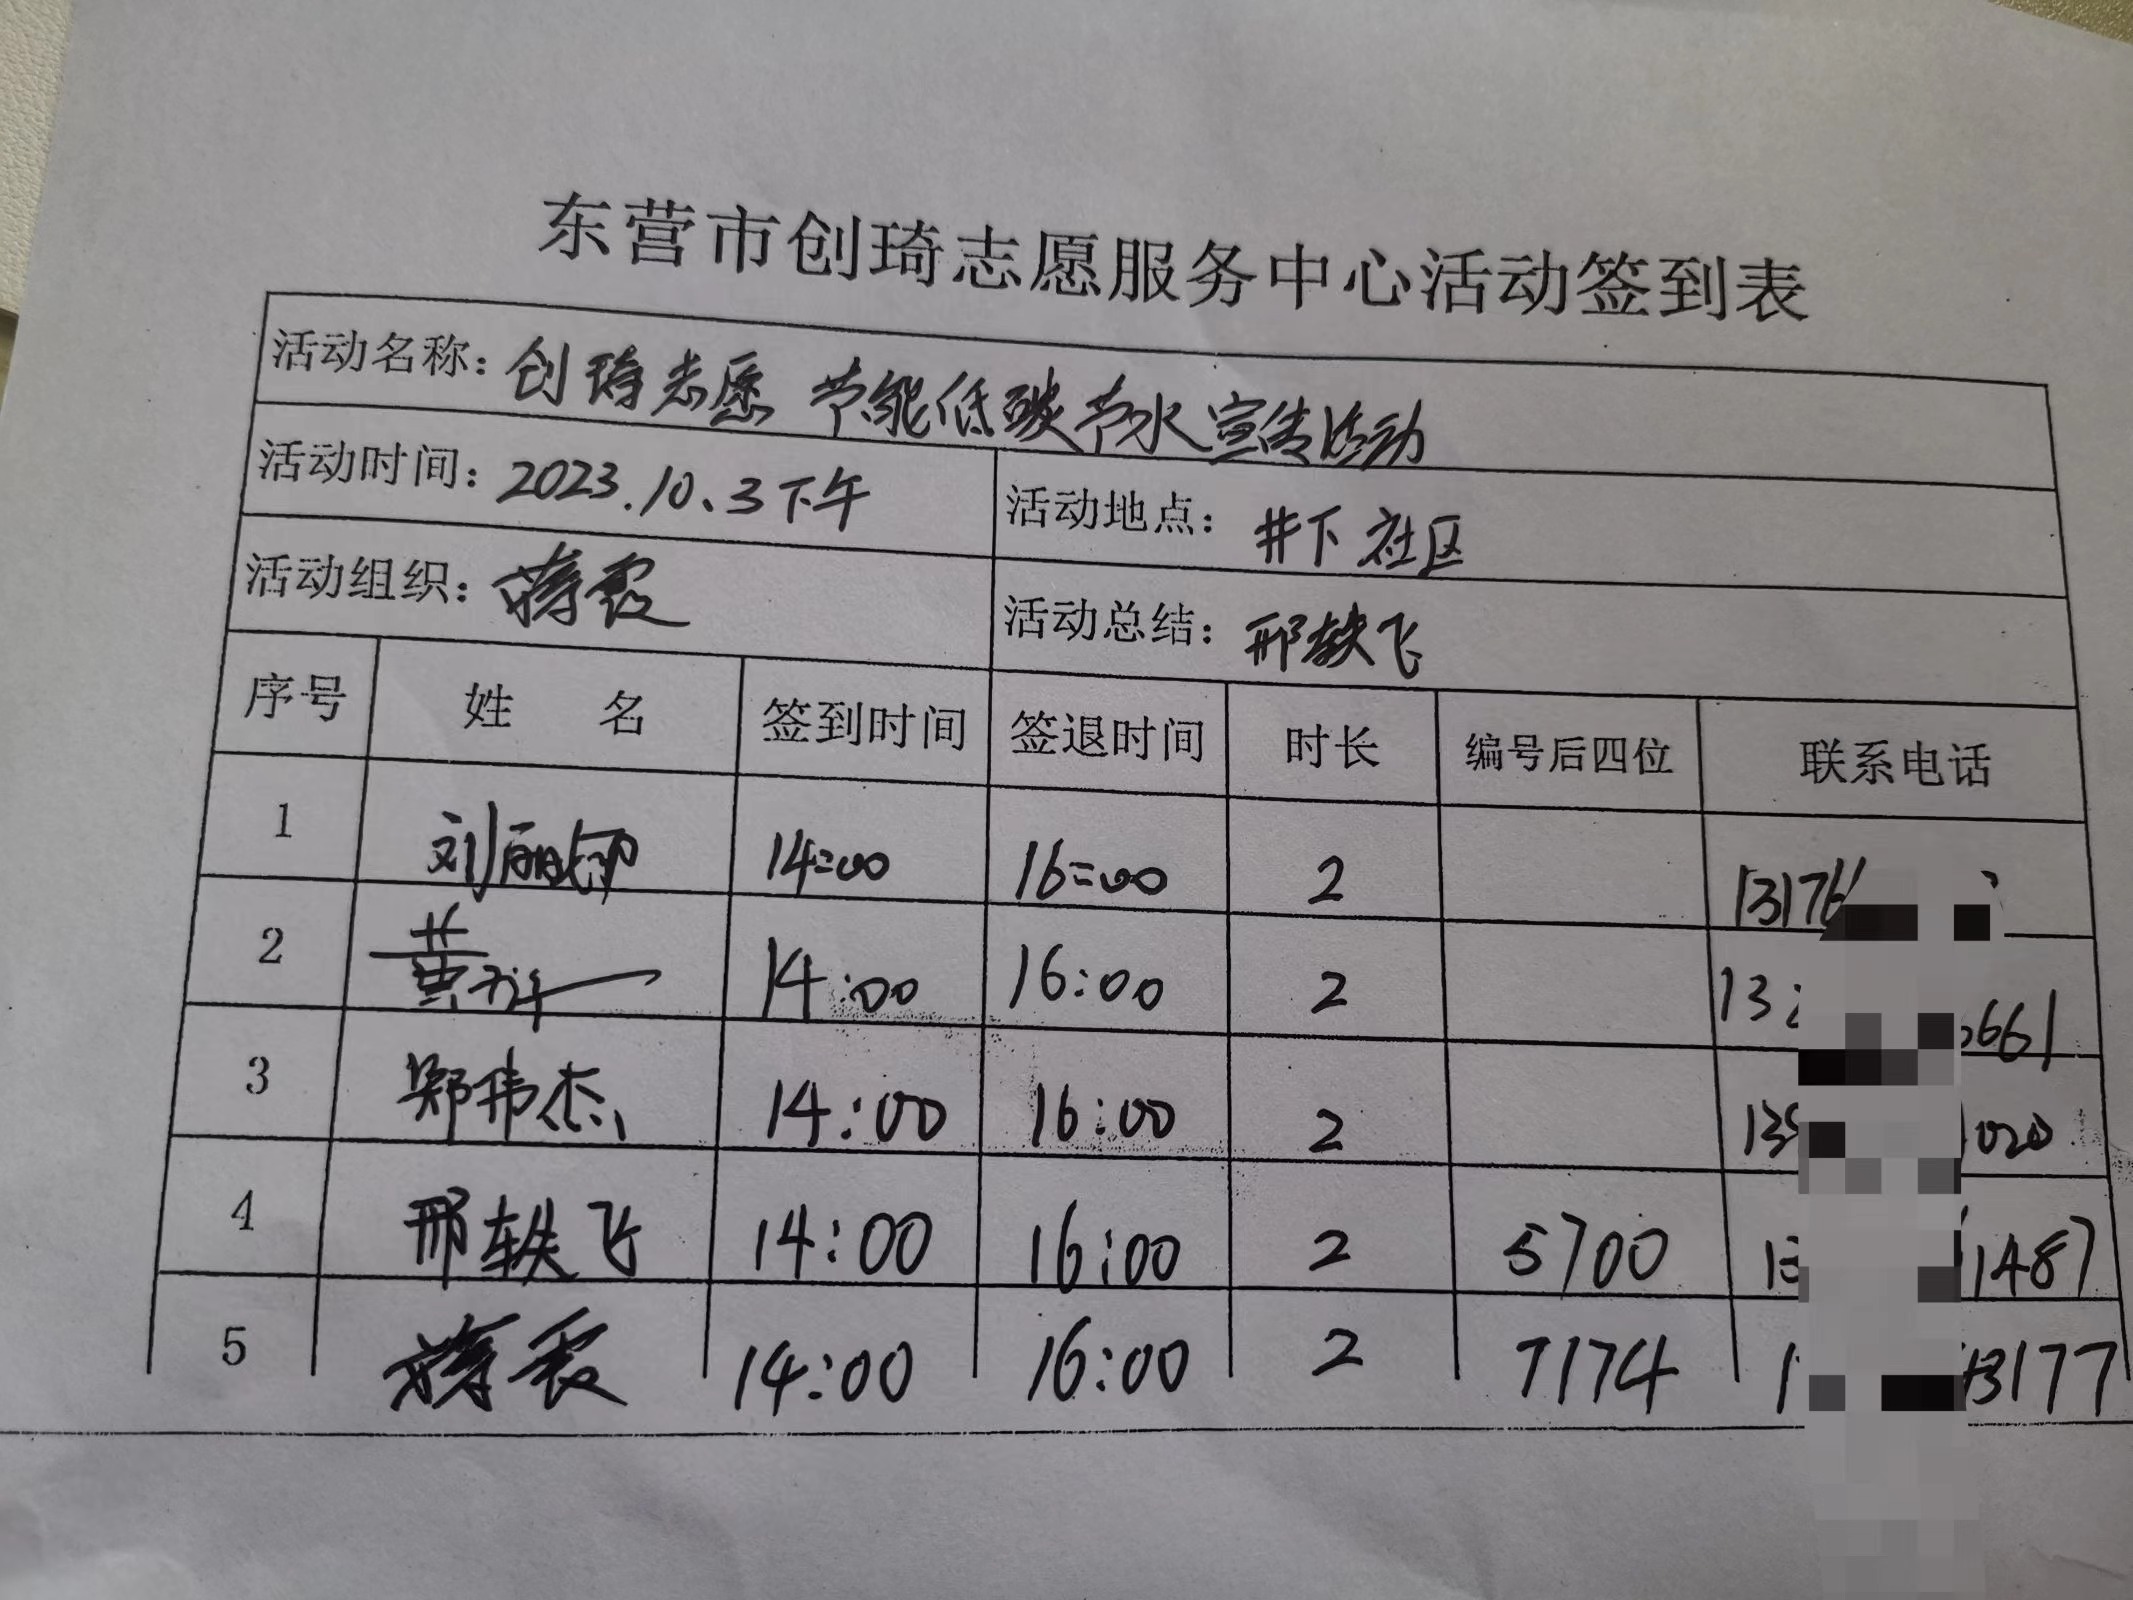 东营市创琦志愿服务中心活动签到表
活动名称：创琦志愿 节能低碳节水宣传活动
活动时间：2023.10.3下午 活动地点：井下社区
活动组织：蒋霞 活动总结：邢轶飞
序号 姓名 签到时间 签退时间 时长 编号后四位 联系电话
1 刘丽 14:00 16:00 2 1317
2 黄 14:00 16:00 2 13 661
3 郑伟杰 14:00 16:00 2 13 020
4 邢轶飞 14:00 16:00 2 5700 13 1487
5 蒋霞 14:00 16:00 2 7174 1 3177